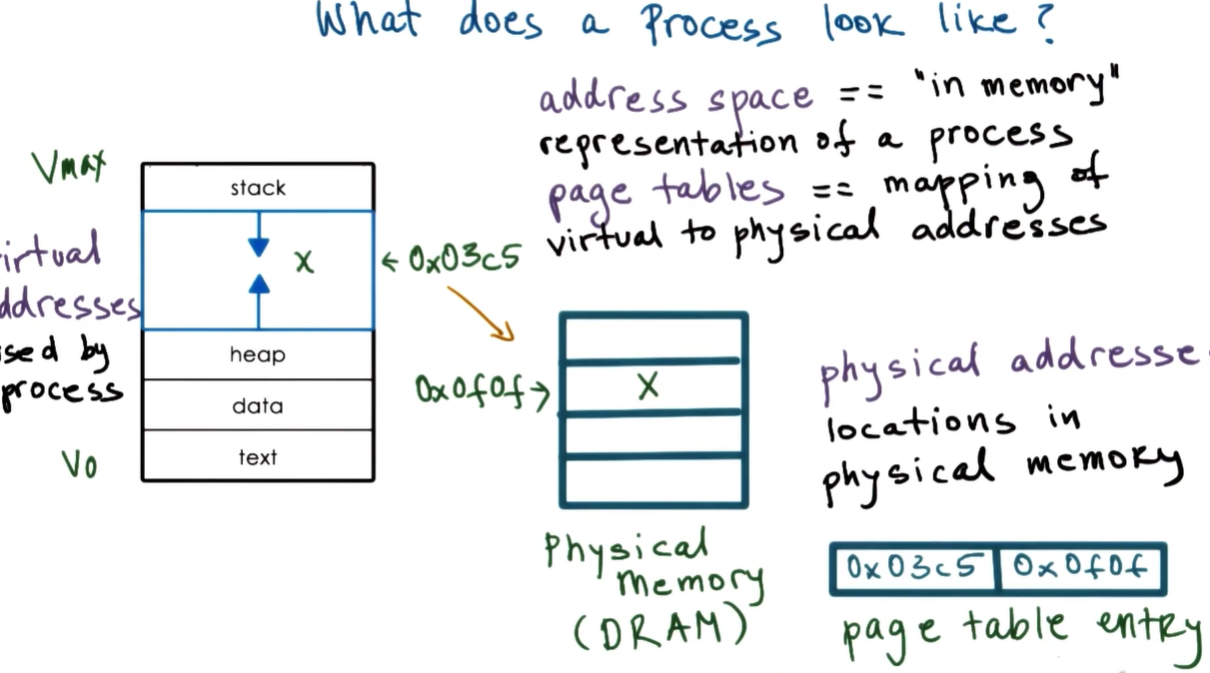 What does a Process look like?
address space == "in memory"
representation of a process
page tables == mapping of
virtual to physical addresses
Vmax
irtual
ddresses
sed by
process
V0
stack
X
heap
data
text
← 0x03c5
0x0f0f →
X
Physical
memory
(DRAM)
physical addresse
locations in
physical memory
0x03c5 0x0f0f
page table entry